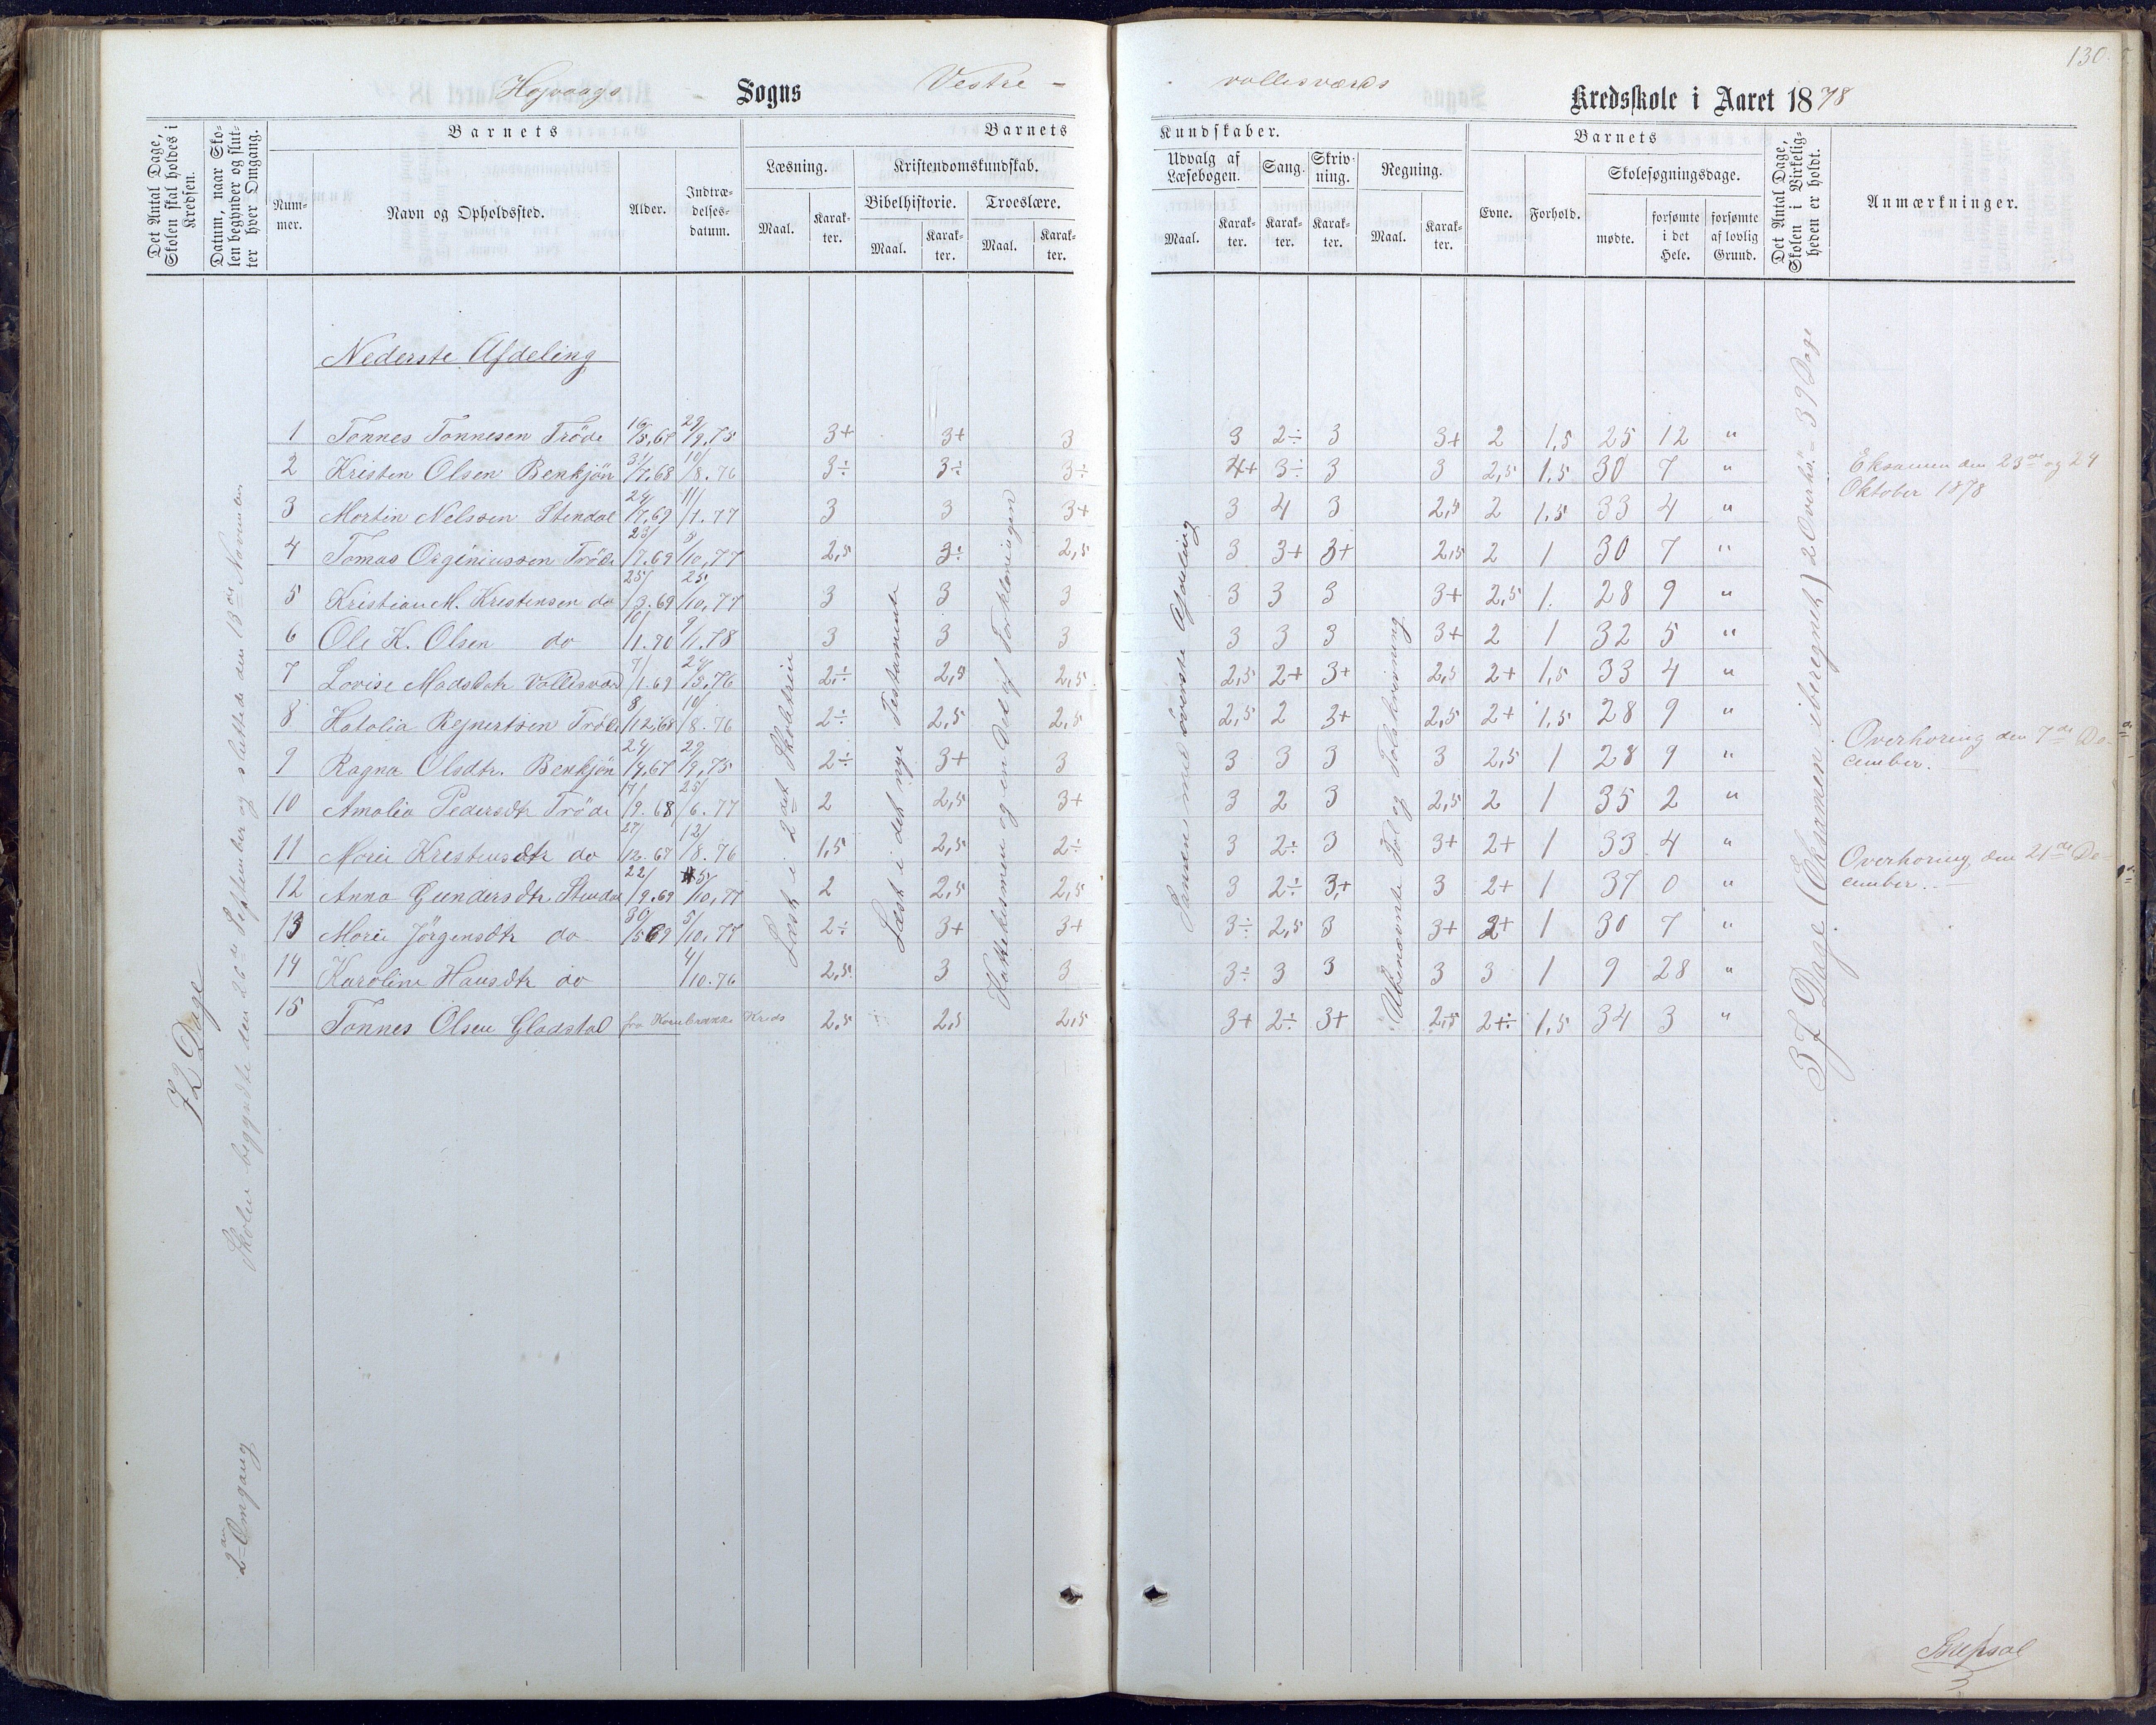 130.
Højvaags Sogns Vestre - vollesværds Kredsskole i Aaret 1878
Det Antal Dage, Skolen skal holdes i Kredsen.
Datum, naar Skolen begynder og slutter hver Omgang.
Barnets
Nummer.
Navn og Opholdssted.
Alder.
Indtrædelsesdatum.
Barnets Kundskaber.
Læsning.
Maal.
Karakter.
Kristendomskundskab.
Bibelhistorie.
Maal.
Karakter.
Troeslære.
Maal.
Karakter.
Udvalg af Læsebogen.
Maal.
Karakter.
Sang.
Karakter.
Skrivning.
Karakter.
Regning.
Maal.
Karakter.
Barnets
Evne.
Forhold.
Skolesøgningsdage.
mødte.
forsømte i det Hele.
forsømte af lovlig Grund.
Det Antal Dage, Skolen i Virkeligheden er holdt.
Anmærkninger.
Nederste Afdeling
1 Tønnes Tønnesen Tröde 16/5.67 29/9.75 3+ 3+ 3 3 2÷ 3 3+ 2 1,5 25 12 "
2 Kristen Olsen Benkjön 31/7.68 10/8.76 3÷ 3÷ 3÷ 4+ 3÷ 3 3 2,5 1,5 30 7 "
3 Martin Nelssen Stendal 24/7.69 11/1.77 3 3 3+ 3 4 3 2,5 2 1,5 33 4 "
4 Tomas Orgeniussen Tröde 23/7.69 5/10.77 2,5 3÷ 2,5 3 3+ 3+ 2,5 2 1 30 7 "
5 Kristian M. Kristensen do 25/3.69 25/10.77 3 3 3 3 3 3 3+ 2,5 1. 28 9 "
6 Ole K. Olsen do 10/1.70 9/1.78 3 3 3 3 3 3 3+ 2 1 32 5 "
7 Lovise Madsdtr Vollesværd 7/1.69 24/5.76 2÷ 2,5 2,5 2,5 2+ 3+ 2,5 2+ 1,5 33 4 "
8 Hatalia Rejnertsen Tröde 8/12.68 10/8.76 2÷ 2,5 2,5 2,5 2 3+ 2,5 2+ 1,5 28 9 "
9 Ragna Olsdtr. Benkjön 24/4.67 29/9.75 2÷ 3+ 3 3 3 3 3 2,5 1 28 9 "
10 Amalia Pedersdtr Tröde 17/9.68 25/6.77 2 2,5 3+ 3 2 3 2,5 2 1 35 2 "
11 Marie Kristensdtr do 27/12.67 12/8.76 1,5 2,5 2÷ 3 2÷ 3 3+ 2+ 1 33 4 "
12 Anna Gundersdtr Stendal 22/9.69 5/10.77 2 2,5 2,5 3 2÷ 3+ 3 2+ 1 37 0 "
13 Marie Jörgensdtr do 30/5 69 5/10.77 2÷ 3+ 3+ 3÷ 2,5 3 3+ 2+ 1 30 7 "
14 Karoline Hansdtr do 4/10.76 2,5 3 3 3÷ 3 3 3 3 1 9 28 "
15 Tønnes Olsen Gladstal fra Kreds 2,5 2,5 2,5 3+ 2÷ 3+ 2,5 2+÷ 1,5 34 3 "
72 Dage
2den Omgang
Skolen begyndte den 26de September og sluttede den 13de November
Læst i 2det Skoletrin
Læst i det nye Testamente
Kattekismen og en Del af Forklaringen
Sammen med øverste Afdeling
Ubenævnte Tal og Talskrivning
37 Dage (Eksamen iberegnet) 2 Overhö. = 39 Dage
Eksamen den 23de og 24
Oktober 1878
Overhøring den 7de De-
cember.
Overhøring den 21de De-
cember.